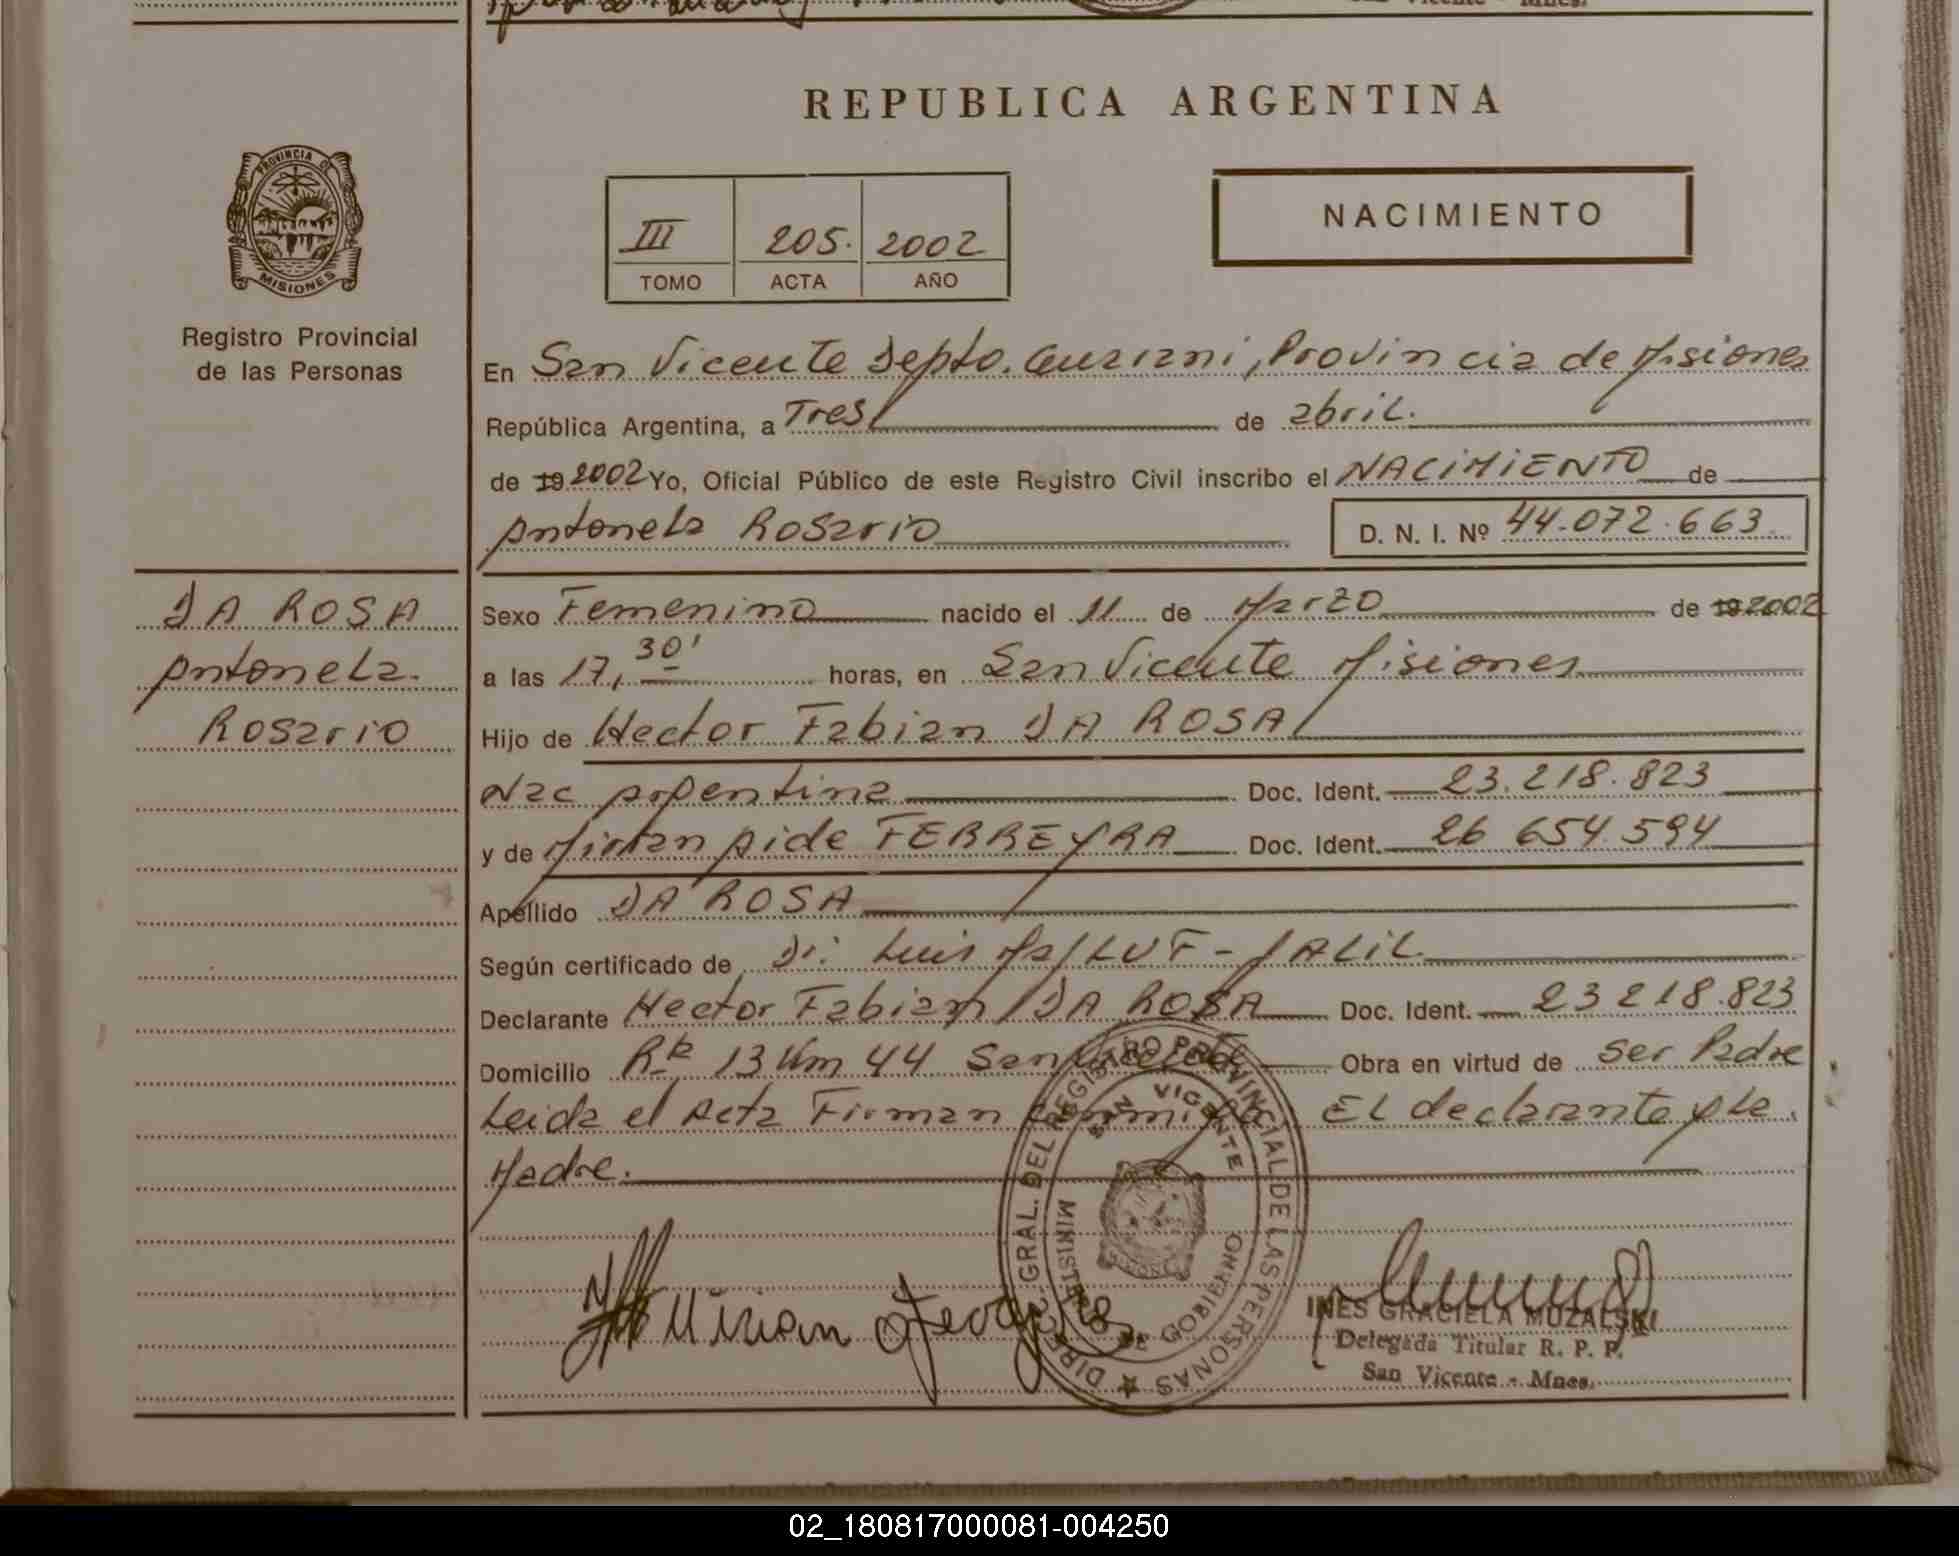 San Vicente - Mnes.
REPUBLICA ARGENTINA
PROVINCIA DE
MISIONES
Registro Provincial
de las Personas
III 205. 2002
TOMO ACTA AÑO
NACIMIENTO
En San Vicente Depto. Guarani, Provincia de Misiones
República Argentina, a Tres de abril.
de 19 2002 Yo, Oficial Público de este Registro Civil inscribo el NACIMIENTO de
Antonela Rosario D. N. I. Nº 44.072.663
DA ROSA
Antonela.
Rosario
Sexo Femenino nacido el 11 de Marzo de 19 2002
a las 17,30' horas, en San Vicente Misiones
Hijo de Hector Fabian DA ROSA
Nac Argentina Doc. Ident. 23.218.823
y de Mirian Aide FERREYRA Doc. Ident. 26 654.594
Apellido DA ROSA
Según certificado de Dr. Luis JALIL
Declarante Hector Fabian DA ROSA Doc. Ident. 23 218.823
Domicilio Rta 13 Km 44 San Vicente Obra en virtud de Ser Padre
Leida el Acta Firman Conmigo El declarante y la
Madre.
DIREC. GRAL. DEL REGISTRO PROVINCIAL DE LAS PERSONAS
SAN VICENTE
MINISTERIO DE GOBIERNO
Mirian
INES GRACIELA MUZALSKI
Delegada Titular R. P. P.
San Vicente - Mnes.
02_180817000081-004250